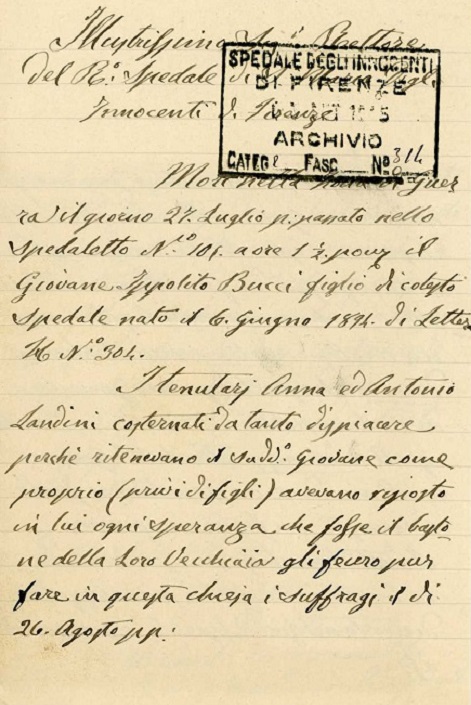 Illustrissimo Sig.r Rettore
del R.o Spedale di degli
Innocenti di Firenze
SPEDALE DEGLI INNOCENTI
DI FIRENZE
ARCHIVIO
CATEG FASC Nº 314
Morì nella Zona di Guer
ra il giorno 27. Luglio p: passato nello
Spedaletto N.o 101. a ore 1 ½ pom il
Giovane Ippolito Bucci figlio di codesto
Spedale nato il 6. Giugno 1894. di Letter
N.o 304.
I tenutarj Anna ed Antonio
Landini costernati da tanto dispiacere
perchè ritenevano il sudd.o Giovane come
proprio (privi di figli) avevano riposto
in lui ogni speranza che fosse il basto
ne della Loro Vecchiaia gli fecero pur
fare in questa chiesa i suffragi il dì
26. Agosto pp: